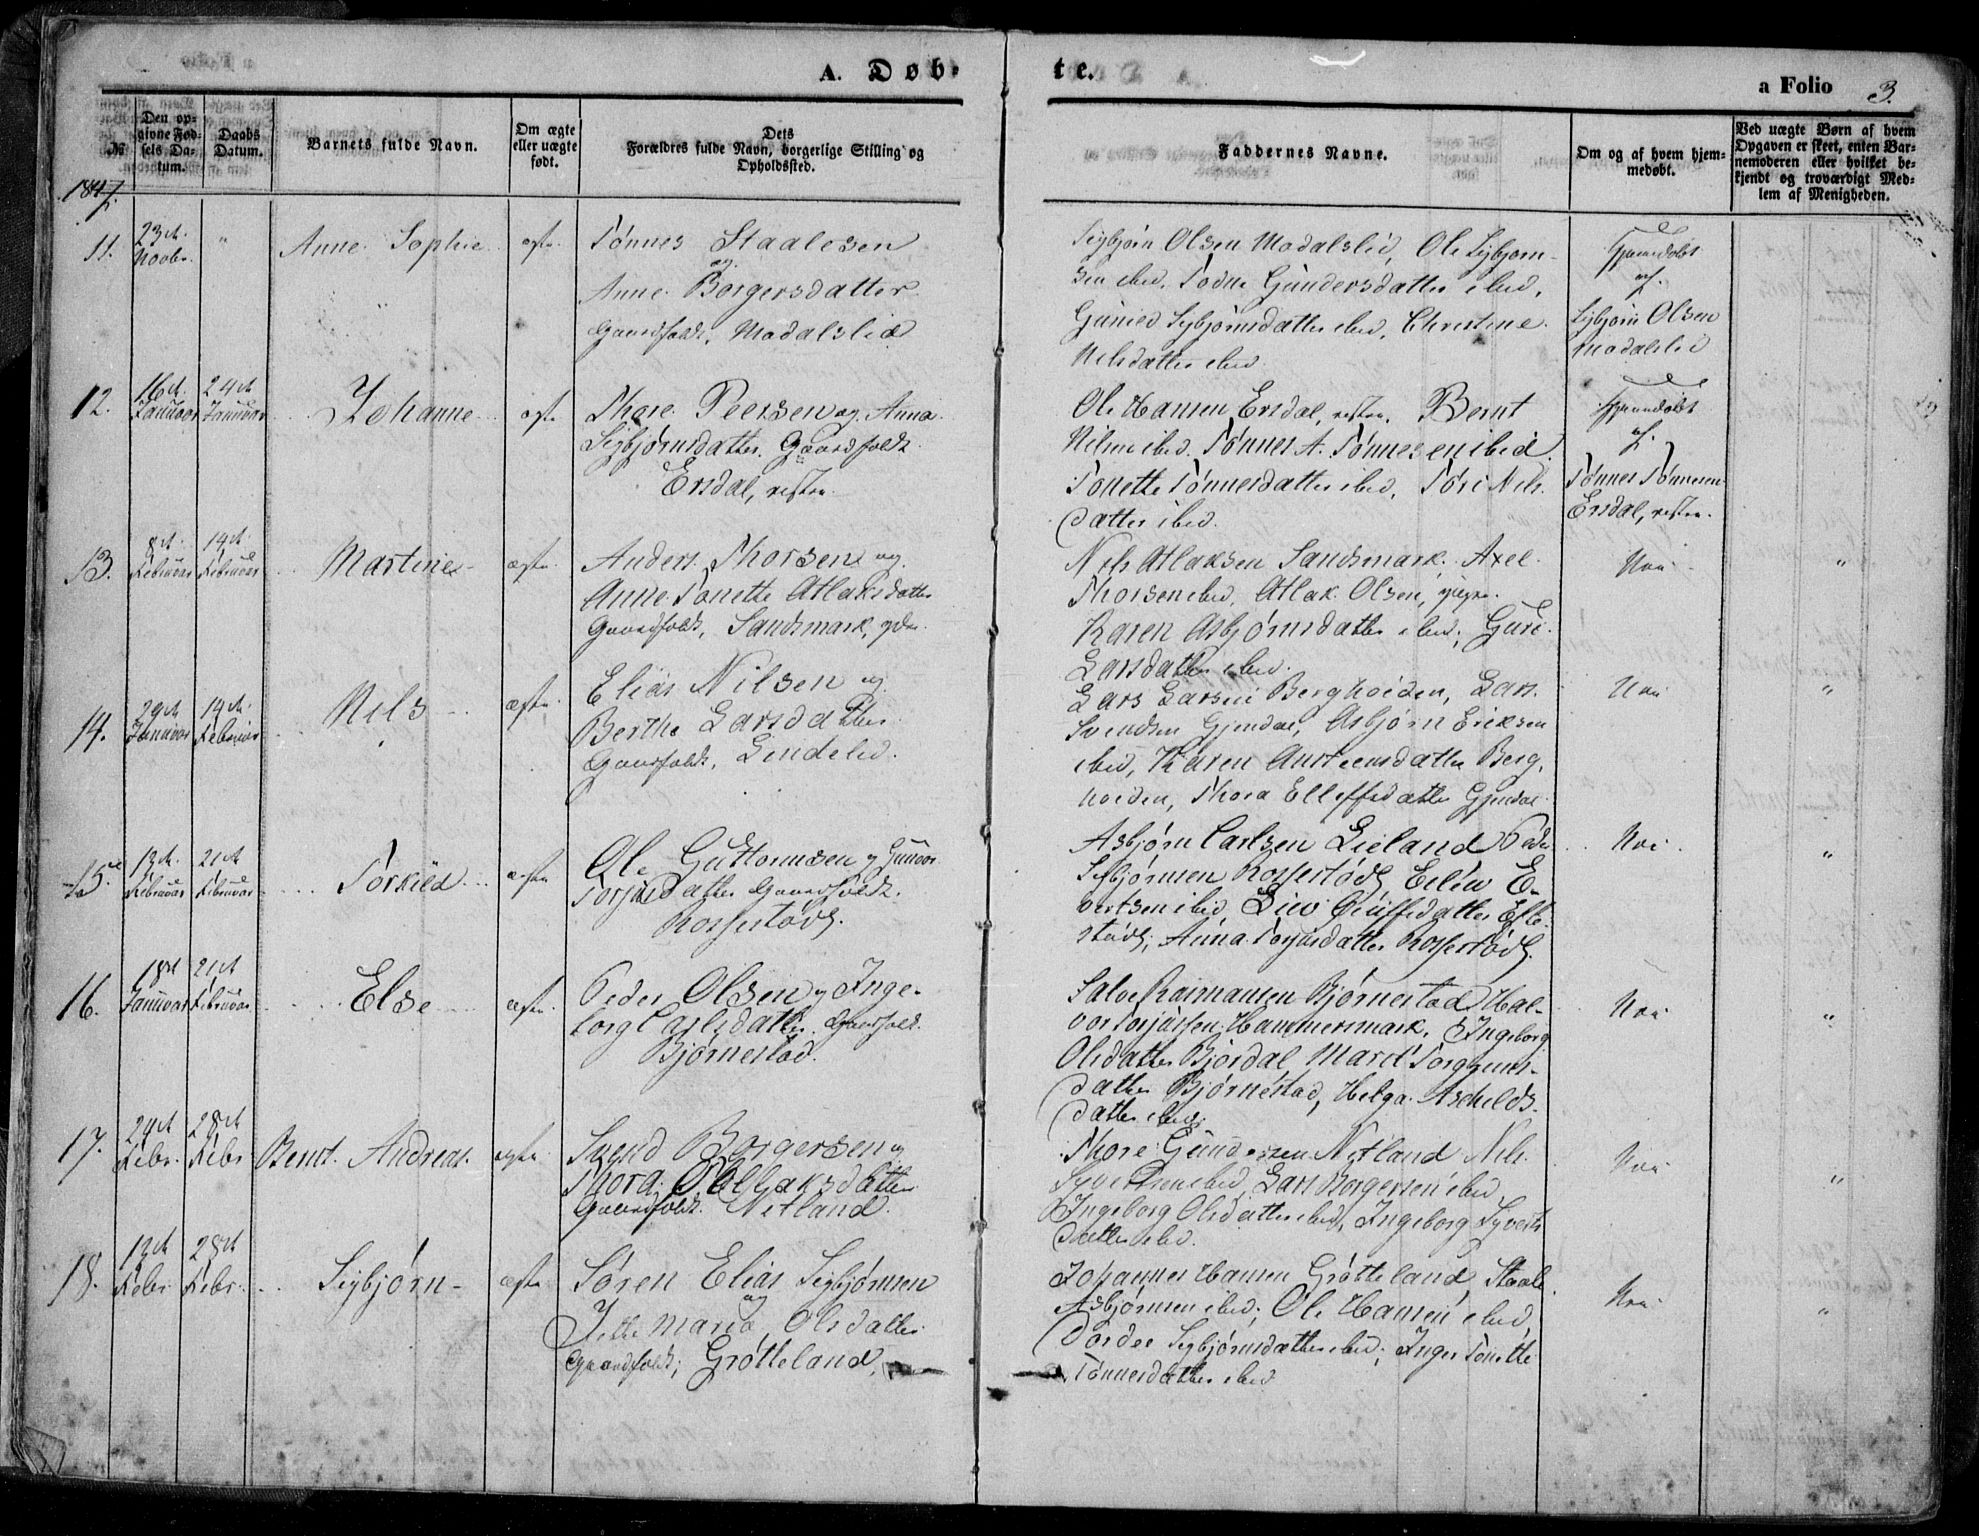 A. Døb-
te.
a Folio 3.
№
Den op-
givne Fød-
sels Da-
tum.
Daabs
Datum.
Barnets fulde Navn.
Om ægte
eller uægte
født.
Dets
Forældres fulde Navn, borgerlige Stilling og
Opholdssted.
Faddernes Navne.
Om og af hvem hjem-
medøbt.
Ved uægte Børn af hvem
Opgaven er skeet, enten Bar-
nemoderen eller hvilket be-
kjendt og troværdigt Med-
lem af Menigheden.
1847.
11.
23de
Novbr.
"
Anne Sophie
ægte
Tønnes Staalesen
og
Anne Borgersdatter
Gaardfolk, Modalslid
Sigbjørn Olsen Modalslid, Ole Sigbjørn-
sen ibid, Todne Gundersdatter ibid,
Sigbjørnsdatter ibid, Christine
Nilsdatter ibid.
Hjemdøbt
af
Sigbjørn Olsen
Modalslid
12.
16de
Januar
24de
Januar
Johanne
ægte
Thore Peersen og Anna
Sigbjørnsdatter. Gaardfolk
Ersdal, vestre.
Ole Hansen Ersdal, vestre. Bernt
Nilsen ibid. Tønnes A. Tønnesen ibid.
Tonette Tønnesdatter ibid, Tøri Nils-
datter ibid.
Hjemdøbt
af
Tønnes Tønnesen
Ersdal, vestre.
13.
8de
Februar
14de
Februar
Martine
ægte
Anders Thorsen og
Anne Tonette Atlaksdatter
Gaardfolk, Sandsmark, ydre.
Nils Atlaksen Sandsmark. Axel
Thorsen ibid, Atlak Olsen,
Karen Asbjørnsdatter ibid; Guri
Larsdatter ibid.
Nei
"
14.
29de
Januar
14de
Februar
Nils
ægte
Elias Nilsen og
Berthe Larsdatter
Gaardfolk, Lindelid.
Lars Larsen Bergheiden, Lars
Svendsen Gjendal, Asbjørn Eriksen
ibid, Karen Austeensdatter Berg-
heiden, Thora Elleffsdatter Gjendal
Nei
"
15.
13de
Februar
21de
Februar
Torkild
ægte
Ole Guttormsen og Gunvor
Torjusdatter Gaardfolk.
Rossestød.
Asbjørn Carlsen Lieland Peder
Sigbjørnsen Rossestød, E-
vertsen ibid, Liv datter
Anna Torjusdatter Rossestød.
Nei.
"
16.
18de
Januar
21de
Februar
Else
ægte
Peder Olsen og Inge-
borg Carlsdatter. Gaardfolk.
Bjørnestad.
Salve Bjørnestad Hal-
vor Torjussen Hammersmark, Ingeborg
Olsdatter Bjordal
datter Bjørnestad, Helga Aschilds-
datter ibid.
Nei
"
17.
24de
Febr.
28de
Febr
Bernt Andreas
ægte
Svend Borgersen og
Thora datter
Gaardfolk. Netland.
Thore Gundersen Netland Nils
Syvertsen ibid, Lars Borgersen ibid
Ingeborg Olsdatter ibid, Ingeborg Syverts-
datter ibid.
Nei
"
18.
13de
Febr
28de
Febr.
Sigbjørn
ægte
Søren Elias Sigbjørnsen
og
Jette Maria Olsdatter
Gaardfolk; Grøtteland
Johannes Hansen Grøtteland, Staale
Asbjørnsen ibid; Ole Hansen ibid,
Tordee Sigbjørnsdatter ibid; Inger Tonette
Tønnesdatter ibid
Nei
"